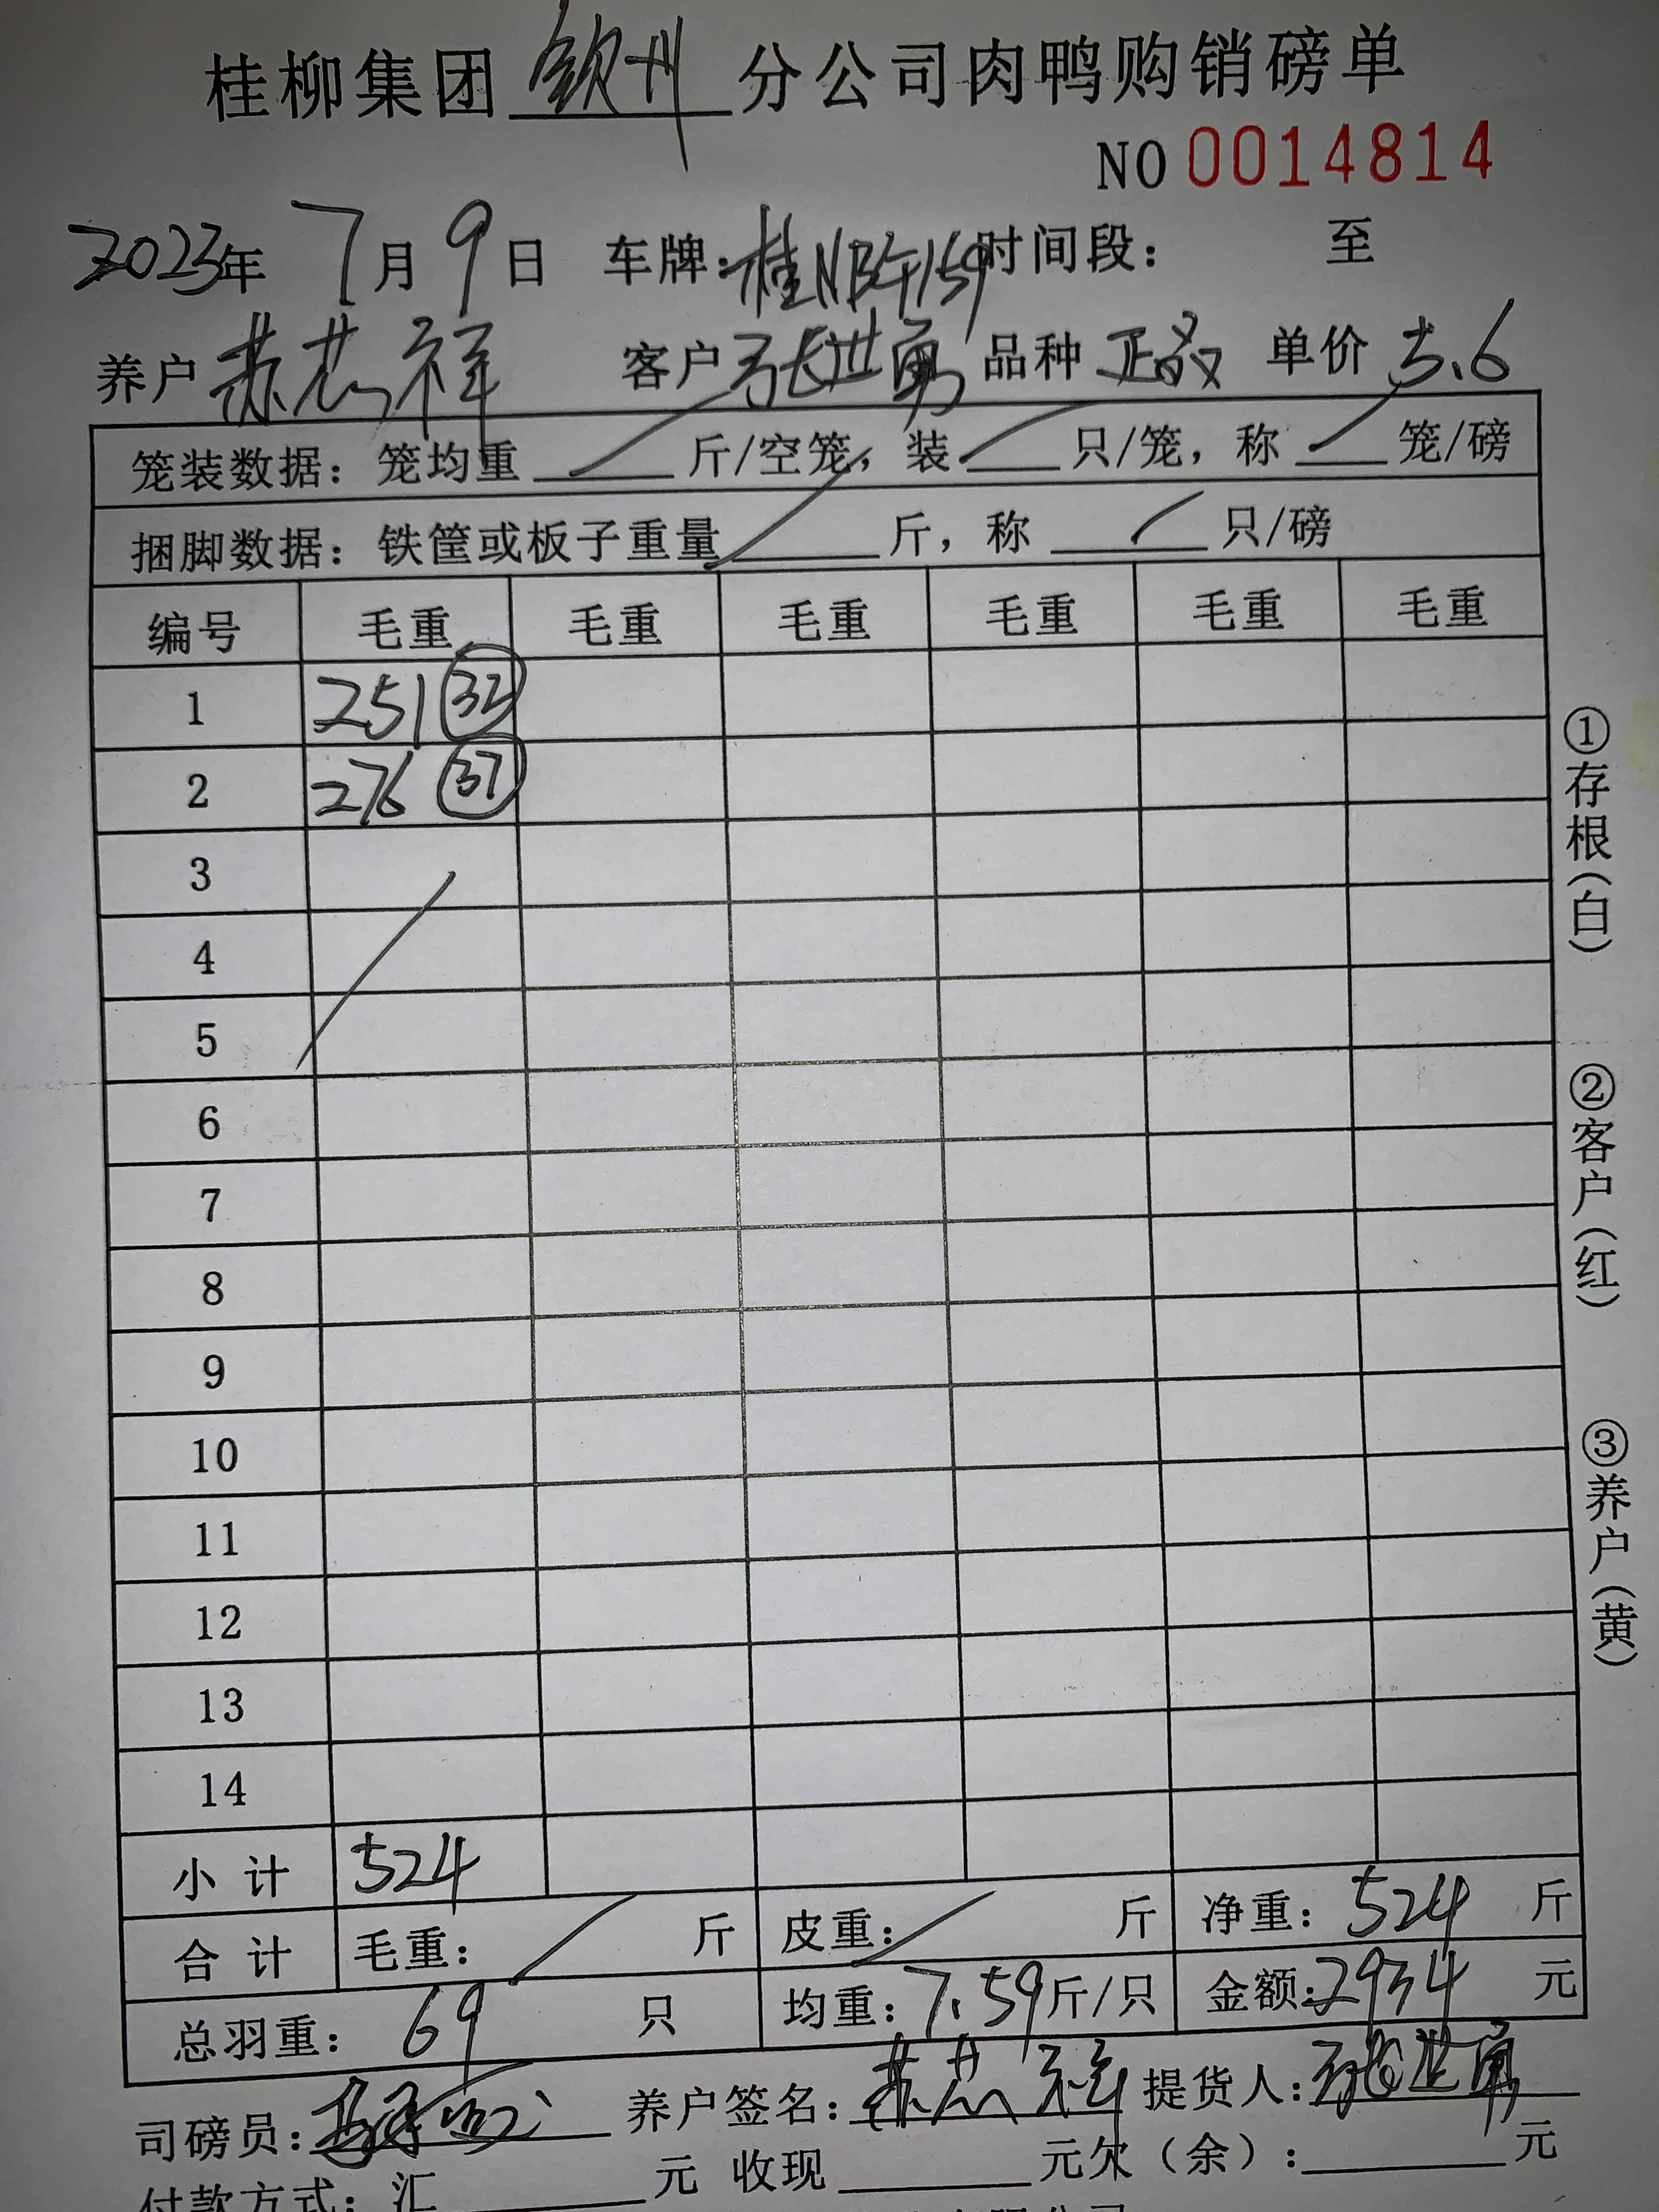 桂柳集团 钦州 分公司肉鸭购销磅单
NO 0014814
2023年 7月 9日 车牌: 桂N 159 时间段: 至
养户 苏芯祥 客户 张世勇 品种 正 单价 5.6
笼装数据: 笼均重 / 斤/空笼, 装 / 只/笼, 称 / 笼/磅
捆脚数据: 铁筐或板子重量 / 斤, 称 / 只/磅
编号 毛重 毛重 毛重 毛重 毛重 毛重
1 251 32
2 276 37
3
4
5
6
7
8
9
10
11
12
13
14
小计 524
合计 毛重: / 斤 皮重: / 斤 净重: 524 斤
总羽重: 69 只 均重: 7.59 斤/只 金额: 2934 元
司磅员: 养户签名: 苏芯祥 提货人: 张世勇
付款方式: 汇 元 收现 元欠(余): 元
①存根(白)
②客户(红)
③养户(黄)